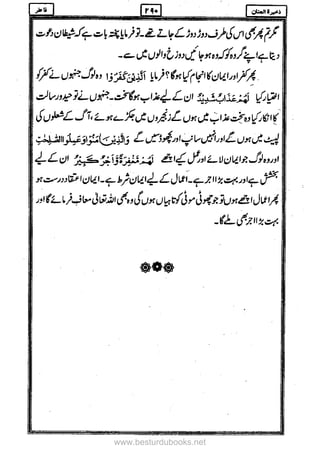 ذخيرة الجنان ٢٩٠ فاطر
مگر تم پھر بھی اس کی طرف دوڑ دوڑ کے جاتے تھے۔ تو فرمایا پختہ بات ہے کہ شیطان دعوت
دیتا ہے اپنے گروہ کو کہ وہ ہو جائیں دوزخ والوں میں سے۔
پھر کفر اور ایمان کا انجام کیا ہو گا؟ فرمایا اَلَّذِيْنَ كَفَرُوْا وہ لوگ جنہوں نے کفر کو
اختیار کیا لَهُمْ عَذَابٌ شَدِيْدٌ ان کے لیے عذاب ہو گا سخت۔ جنہوں نے توحید و رسالت
کا انکار کیا وہ سخت عذاب میں ہوں گے زنجیروں میں جکڑے ہوئے، آگ کے شعلوں کی
لپیٹ میں ہوں گے اور انہیں سانپ اور بچھو ڈسیں گے وَالَّذِيْنَ اٰمَنُوْا وَعَمِلُوا الصّٰلِحٰتِ
اور وہ لوگ جو ایمان لائے اور عمل کیے اچھے لَهُمْ مَّغْفِرَةٌ وَّاَجْرٌ كَبِيْرٌ ان کے لیے
بخشش ہے اور بہت بڑا اجر ہے۔ اعمال کے لیے ایمان شرط ہے۔ ایمان، اعتقاد درست ہو
پھر اعمال اچھے ہوں تو جو چھوٹی موٹی کوتاہیاں ہوں گی وہ بھی اللہ تعالیٰ معاف فرمائے گا اور
بہت بڑا اجر بھی ملے گا۔
www.besturdubooks.net